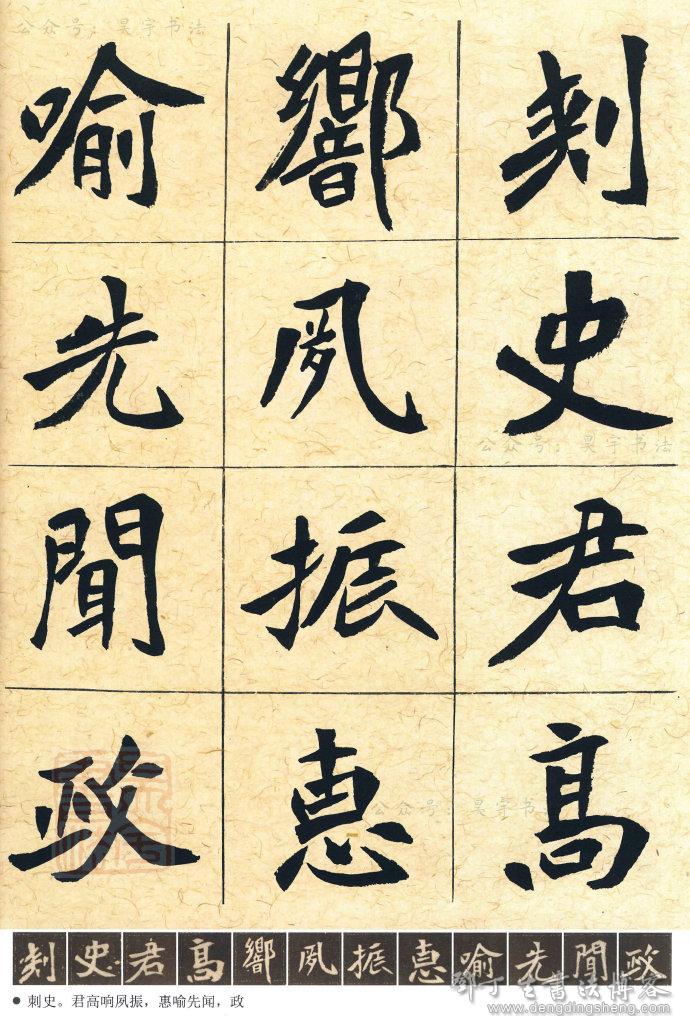 公众号：昊宇书法
刾史君髙
響夙振惠
喻先聞政
公众号：昊宇书法
公众号：昊宇书法
刾史君髙響夙振惠喻先聞政
● 刺史。君高响夙振，惠喻先闻，政
邓丁生书法博客
www.dengdingsheng.com